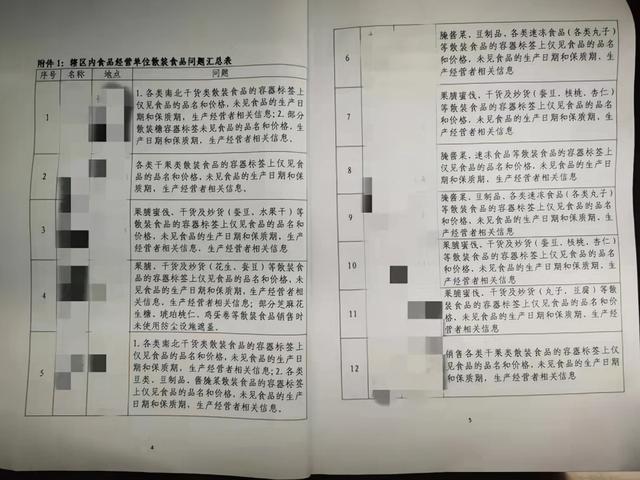 附件1：辖区内食品经营单位散装食品问题汇总表
序号 名称 地点 问题
1
1.各类南北干货类散装食品的容器标签上
仅见食品的品名和价格，未见食品的生产日
期和保质期、生产经营者相关信息；2.部分
散装糖容器标签未见食品的品名和价格，生
产日期和保质期，生产经营者相关信息。
2
各类干果类散装食品的容器标签上仅见食
品的品名和价格，未见食品的生产日期和保
质期，生产经营者相关信息。
3
果脯蜜饯、干货及炒货（蚕豆、水果干）等
散装食品的容器标签上仅见食品的品名和
价格，未见食品的生产日期和保质期，生产
经营者相关信息。
4
果脯、干货及炒货（花生、蚕豆）等散装食
品的容器标签上仅见食品的品名和价格，未
见食品的生产日期和保质期，生产经营者相
关信息，生产经营者相关信息；部分芝麻花
生糖、琥珀桃仁、鸡蛋卷等散装食品销售时
未使用防尘设施遮盖。
5
1.各类南北干货类散装食品的容器标签上
仅见食品的品名和价格，未见食品的生产日
期和保质期，生产经营者相关信息；2.各类
豆类、豆制品、酱腌菜散装食品的容器标签
上仅见食品的品名和价格，未见食品的生产
日期和保质期，生产经营者相关信息。
4
6
腌酱菜、豆制品、各类速冻食品（各类丸子）
等散装食品的容器标签上仅见食品的品名
和价格，未见食品的生产日期和保质期，生
产经营者相关信息
7
果脯蜜饯、干货及炒货（蚕豆、核桃、杏仁）
等散装食品的容器标签上仅见食品的品名
和价格，未见食品的生产日期和保质期，生
产经营者相关信息
8
腌酱菜、速冻食品等散装食品的容器标签上
仅见食品的品名和价格，未见食品的生产日
期和保质期，生产经营者相关信息
9
腌酱菜、豆制品、各类速冻食品（各类丸子）
等散装食品的容器标签上仅见食品的品名
和价格，未见食品的生产日期和保质期，生
产经营者相关信息
10
果脯蜜饯、干货及炒货（蚕豆、核桃、杏仁）
等散装食品的容器标签上仅见食品的品名
和价格，未见食品的生产日期和保质期，生
产经营者相关信息
11
果脯蜜饯、干货及炒货（丸子、豆腐）等散
装食品的容器标签上仅见食品的品名和价
格，未见食品的生产日期和保质期，生产经
营者相关信息
12
销售各类干果类散装食品的容器标签上仅
见食品的品名和价格，未见食品的生产日期
和保质期，生产经营者相关信息
5